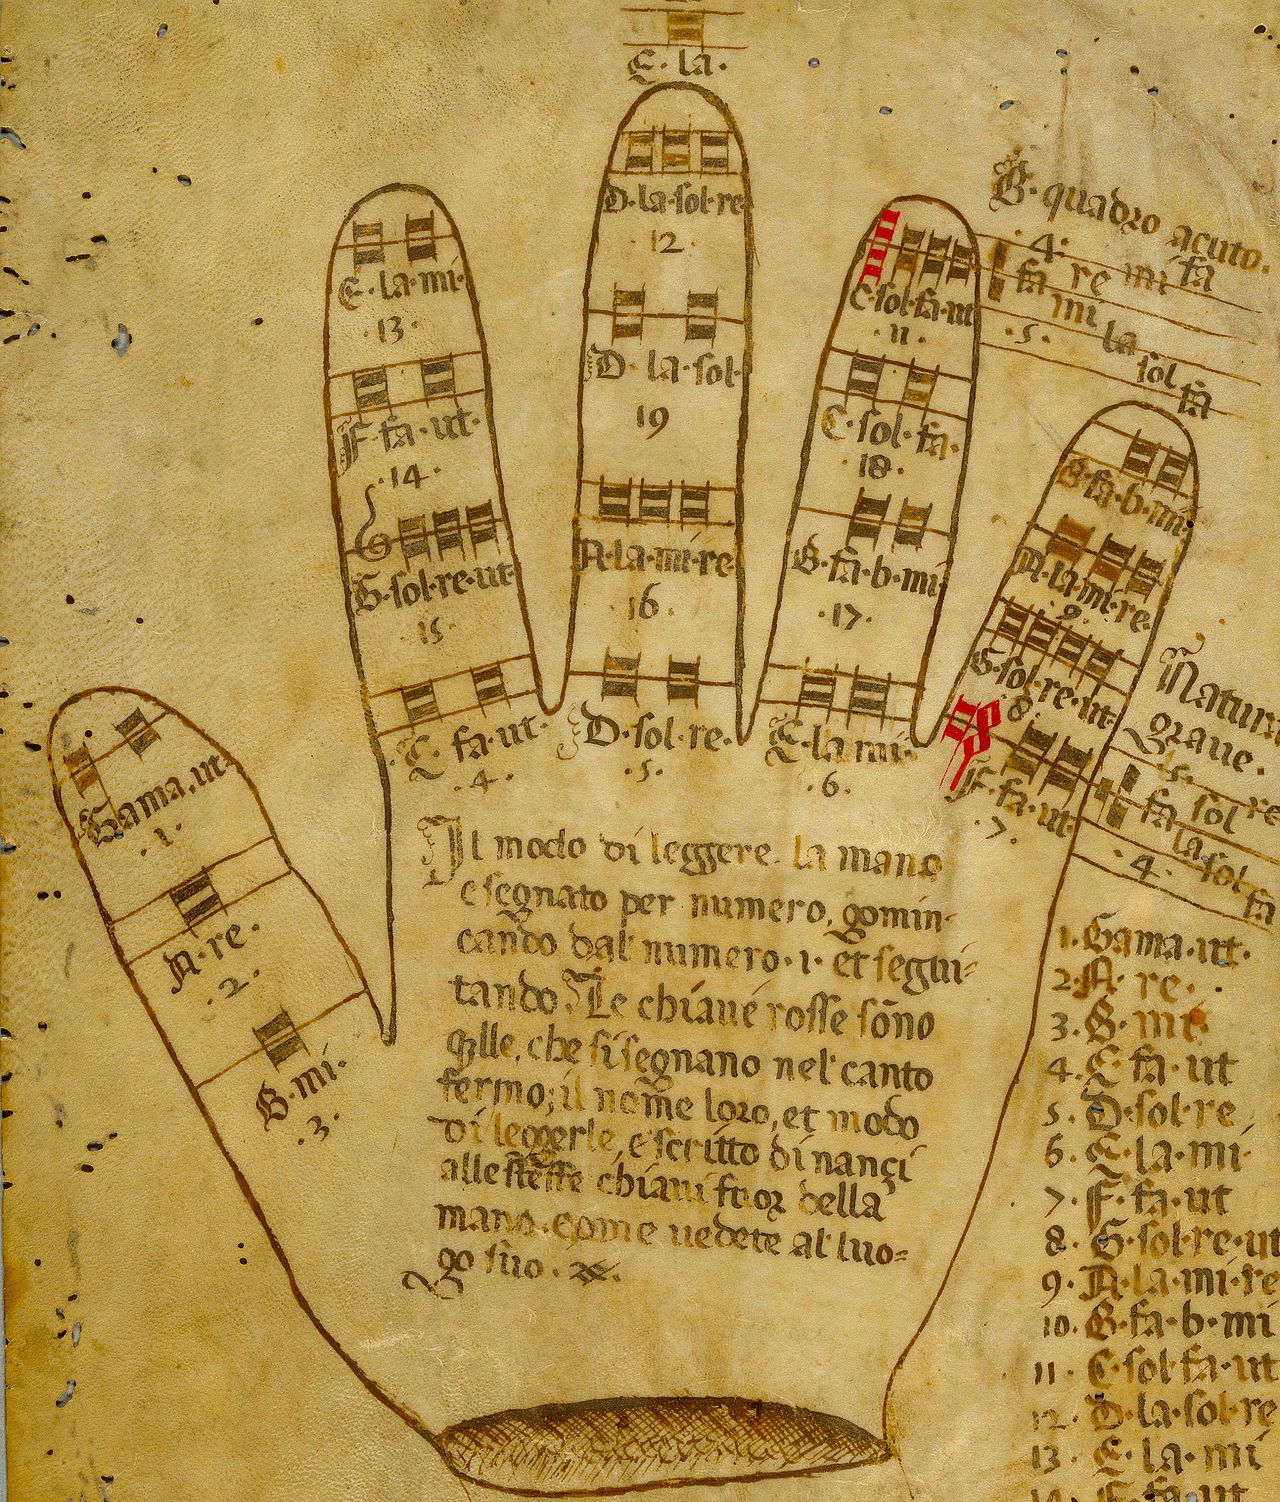 E·la·
D·la·sol·re
·12·
D·la·sol·
19
A·la·mi·re·
16·
D·sol·re·
·5·
E·la·mi·
·13·
F·fa·ut·
·14·
G·sol·re·ut·
·15·
C·fa·ut·
·4·
C·sol·fa·ut
·11·
C·sol·fa·
·18·
B·fa·b·mi
·17·
E·la·mi·
·6·
B·quadro acuto.
·4·
fa re mi fa
mi
·5· la
sol
fa
B·fa·b·mi·
A·la·mi·re·
9·
G·sol·re·ut·
8·
F·fa·ut·
·7·
Natura
graue.
fa sol re
la sol
·4· fa
Gama·ut·
·1·
A·re·
·2·
B·mi·
·3·
Il modo di leggere la mano
e segnato per numero, gomin-
cando dal numero·1· et segui-
tando. Le chiaue rosse sōno
qlle, che si segnano nel canto
fermo; il nome loro, et modo
di leggerle, e scritto dinançi
alle stesse chiaui fuor della
mano. come uedete al luo=
go suo.
1. Gama·ut·
2. A· re·
3. B· mi·
4. C fa·ut
5. D·sol·re
6. E·la·mi·
7. F·fa·ut
8. G·sol·re·ut
9. A·la·mi·re
10. B·fa·b·mi
11 C·sol·fa·ut
12. D·la·sol·re
13. E·la·mi
14 F·fa·ut